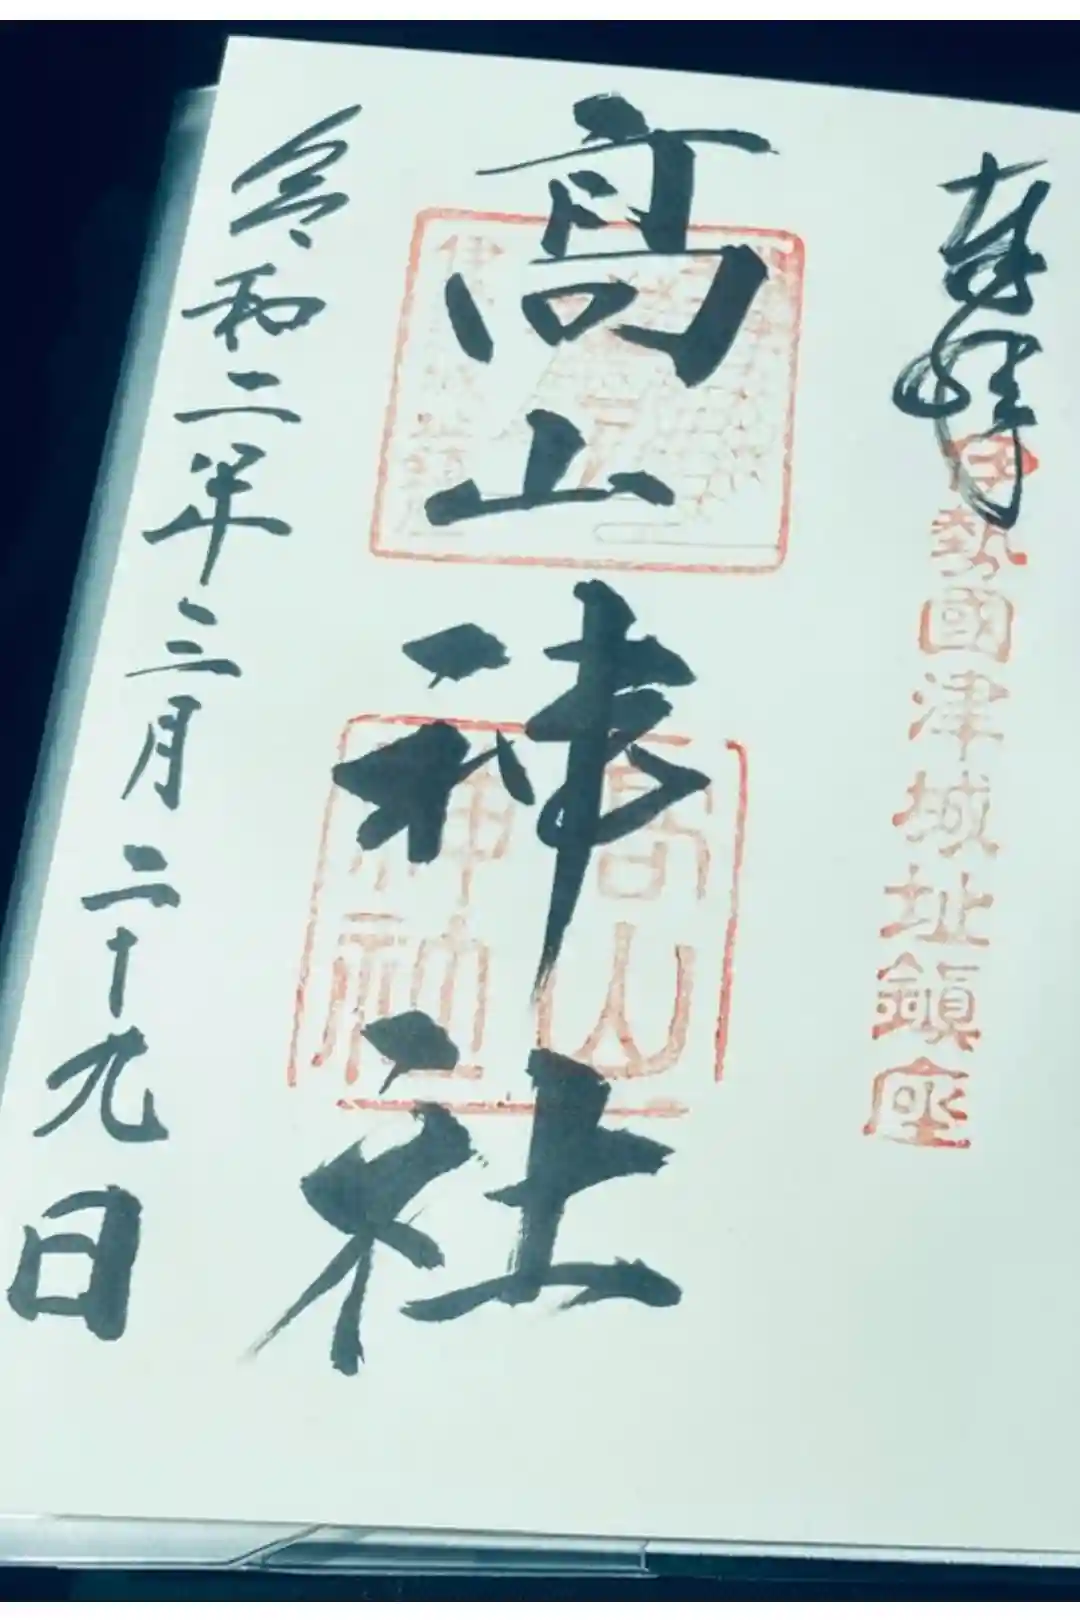 奉拝
伊勢國津城址鎮座
髙山神社
高山
神社
令和二年三月二十九日